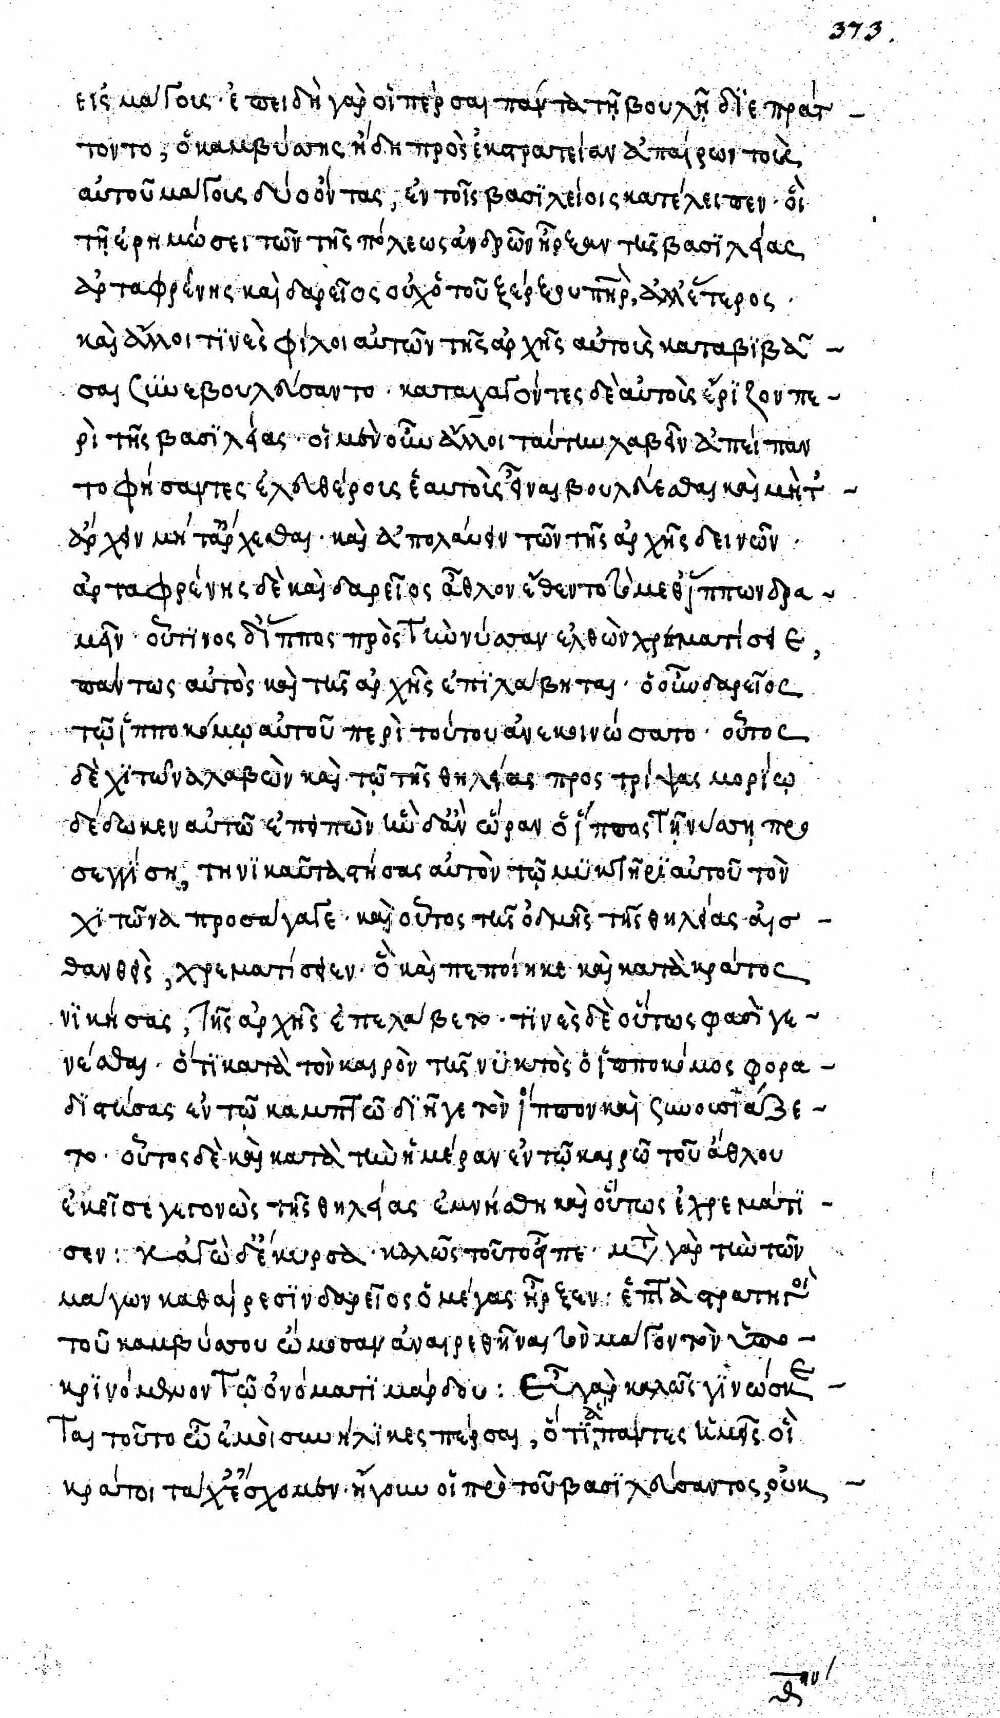 373.
εἰς μάγοις· ἐπειδὴ γὰρ οἱ πέρσαι πάντα τῇ βουλῇ διεπράτ
τοντο, ὁ καμβύσης ἤδη πρὸς ἐκστρατείαν ἀπαίρων τοὺς
αὐτοῦ μάγους δύο ὄντας, ἐν τοῖς βασϊλείοις κατέλειπεν· οἳ
τῇ ἐρημώσει τῶν τῆς πόλεως ἀνδρῶν ἦρξαν τῆς βασϊλείας
ἀρταφρένης καὶ δαρεῖος οὐχ ὁ τοῦ ξέρξου πηρ, ἀλλ' ἕτερος·
καὶ ἄλλοι τϊνὲς φίλοι αὐτῶν τῆς ἀρχῆς αὐτοὺς καταβϊβά
σαι συνεβουλεύσαντο· καταγαγόντες δὲ αὐτοὺς ἤρϊζον πε
ρὶ τῆς βασϊλείας· οἱ μὲν οὖν ἄλλοι ταύτην λαβεῖν ἀπείπαν
το φήσαντες ἐλευθέρους ἑαυτοὺς εἶναι βούλεσθαι καὶ μήτ'
ἄρχειν μήτ' ἄρχεσθαι· καὶ ἀπολαύειν τῶν τῆς ἀρχῆς δεινῶν·
ἀρταφρένης δὲ καὶ δαρεῖος ἆθλον ἔθεντο τὸ μεθ' ἵππων δρα
μεῖν οὗτινος δ' ἵππος πρὸς τὴν νύσσαν ἐλθὼν χρεματίσειε,
πάντως αὐτὸς καὶ τῆς ἀρχῆς ἐπϊλάβηται· ὁ οὖν δαρεῖος
τῷ ἱπποκόμῳ αὐτοῦ περὶ τούτου ἀνεκοινώσατο· οὗτος
δὲ χϊτῶνα λαβὼν καὶ τῷ τῆς θηλείας προστρίψας μορίῳ
δέδωκεν αὐτῷ ἐπειπὼν καθ' ἣν ὥραν ὁ ἵππος τῇ νύσσῃ προ
σεγγίσῃ, τηνϊκαῦτα στήσας αὐτὸν τῷ μϋκτῆρϊ αὐτοῦ τὸν
χϊτῶνα προσάγαγε· καὶ οὗτος τῆς ὀδμῆς τῆς θηλείας αἰσ
θανθεὶς, χρεματίσειεν· ὃ καὶ πεποίηκε καὶ κατὰ κράτος
νϊκήσας, τῆς ἀρχῆς ἐπελάβετο· τϊνὲς δὲ οὕτως φασὶ γε
νέσθαι· ὅτϊ κατὰ τὸν καιρὸν τῆς νϋκτὸς ὁ ἱπποκόμος φορά
δϊ στήσας ἐν τῷ καμπτῷ διῆγε τὸν ἵππον καὶ συνουσϊάζε
το· οὗτος δὲ καὶ κατὰ τὴν ἡμέραν ἐν τῷ καιρῷ τοῦ ἄθλου
ἐκεῖσε γεγονὼς τῆς θηλείας ἐμνήσθη καὶ οὕτως ἐχρεμάτϊ
σεν: κἀγὼ δ' ἔκυρσα· καλῶς τοῦτο εἶπε· μτ γὰρ τὴν τῶν
μάγων καθαίρεσϊν δαρεῖος ὁ μέγας ἦρξεν: ἑπτὰ στρατηγοὶ
τοῦ καμβύσου ὤμοσαν ἀναιρεθῆναι τὸν μάγον τὸν ὑπο
κρϊνόμενον τῷ ὀνόματϊ μάρδου: εὖ γὰρ καλῶς γϊνώσκε
ται τοῦτο ὦ ἐμοὶ συνήλϊκες πέρσαι, ὅτϊ ἅπαντες ἡμεῖς οἳ
κράτοι ταχ' ἔσχομεν· ἤγουν οἱ πρὸ τοῦ βασϊλεύσαντος, οὐκ